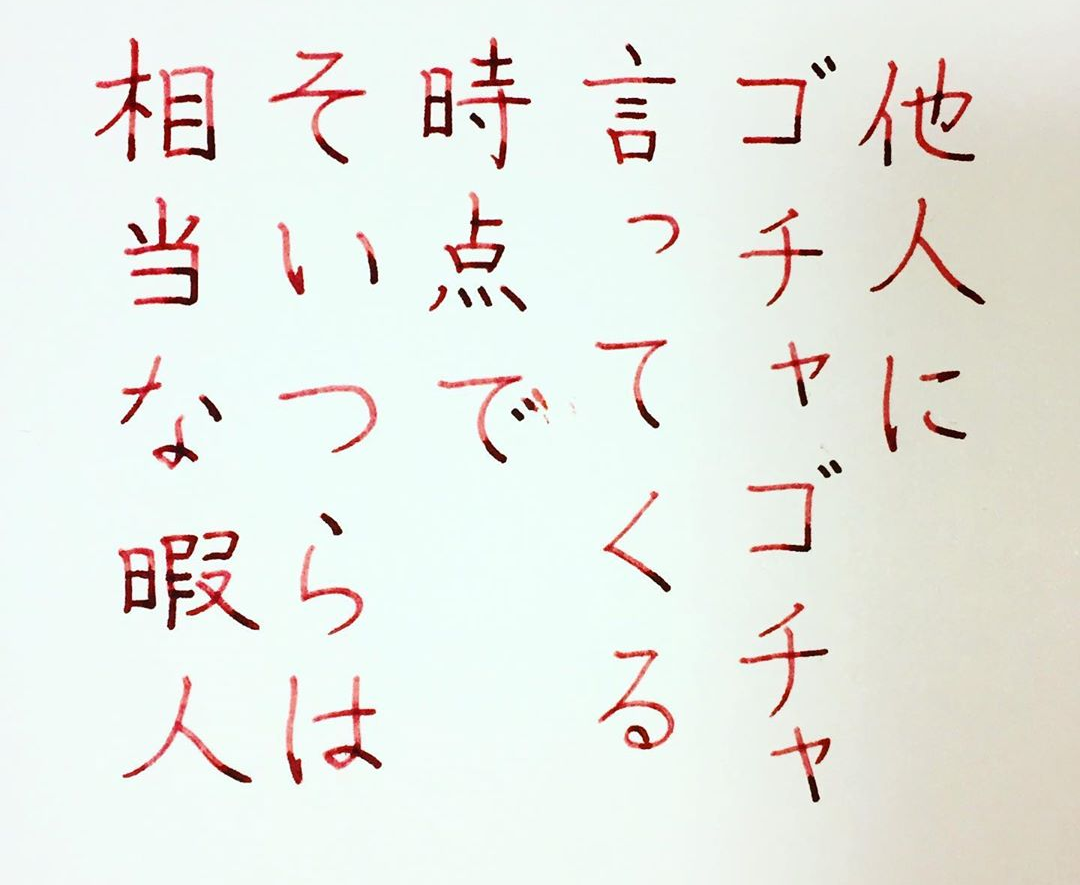 他人に
ゴチャゴチャ
言ってくる
時点で
そいつらは
相当な暇人